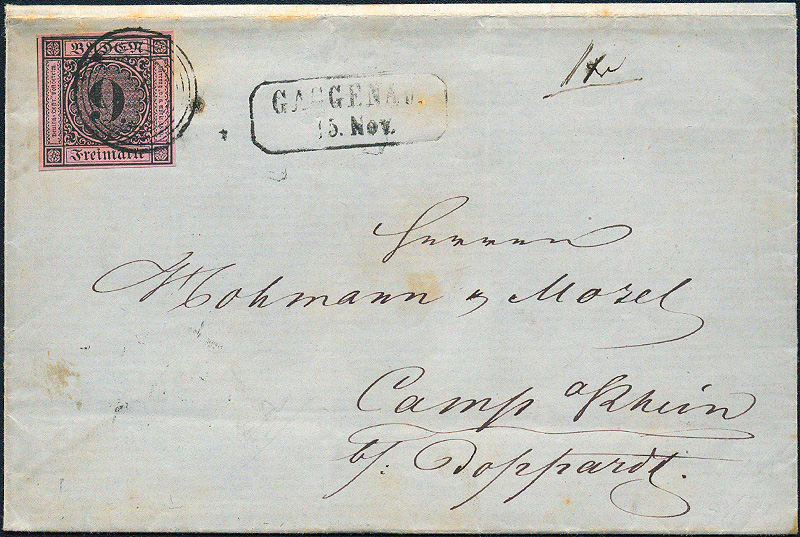 BADEN
9
Freimarke
GAGGENAU.
15. Nov.
Herren
Mohmann & Mosel
Camp a/Rhein
b/. Boppardt.